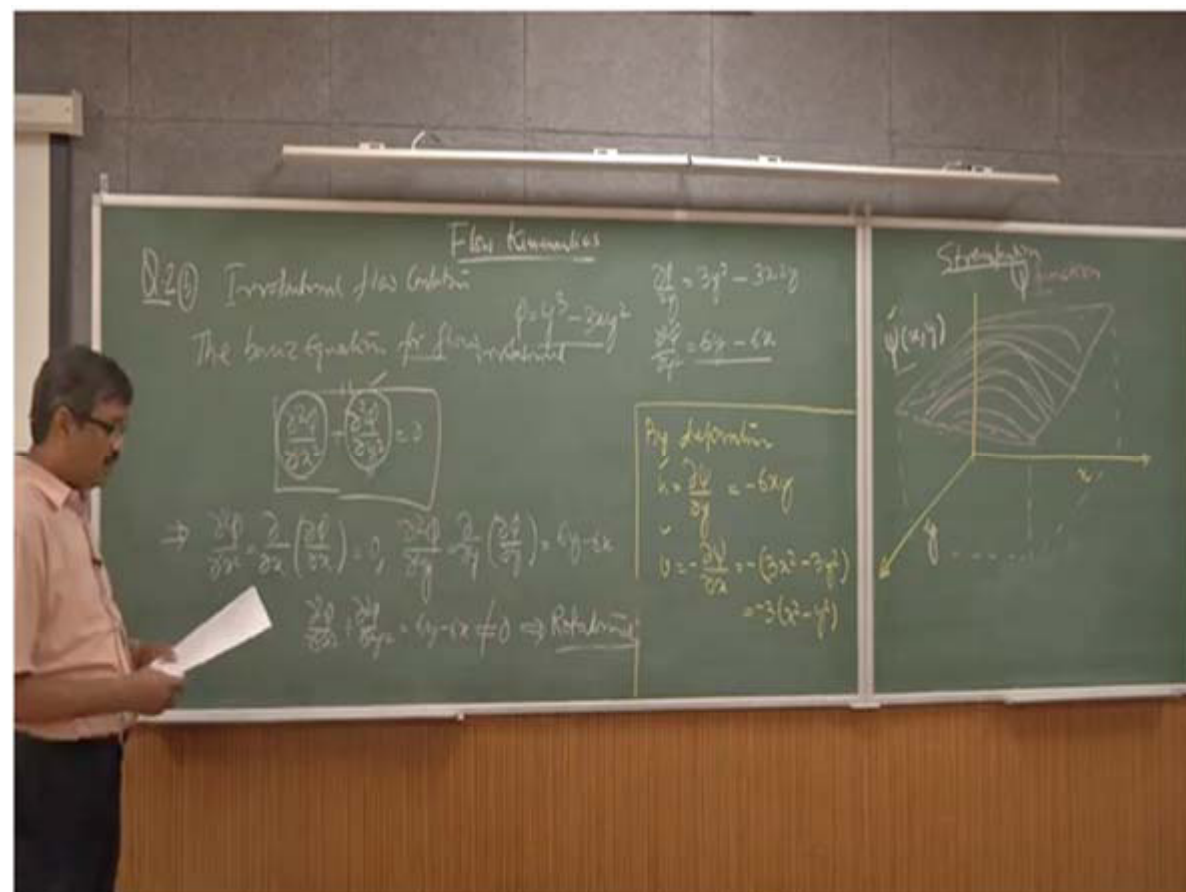 Flow Kinematics
Q.2 ③ Irrotational flow Condition
φ=y³-3xy²
The basic Equation for flow irrotational
∂²φ/∂x² + ∂²φ/∂y² = 0
⇒ ∂²φ/∂x² = ∂/∂x (∂φ/∂x) = 0, = ∂/∂y (∂φ/∂y) = 6y-6x
∂²φ/∂x² + ∂²φ/∂y² = 6y-6x ≠ 0 ⇒ Rotational
= 3y²
= 6y - 6x
By definition
u = ∂ψ/∂y = -6xy
v = -∂ψ/∂x = -(3x²-3y²)
= -3(x²-y²)
function
ψ(x,y)
x
y